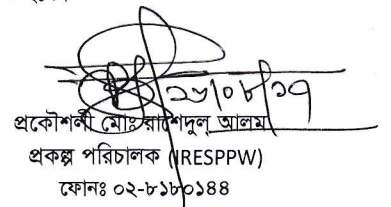 ২৮/০৮/১৭
প্রকৌশলী মোঃ রাশেদুল আলম
প্রকল্প পরিচালক (IRESPPW)
ফোনঃ ০২-৮১৮০১৪৪